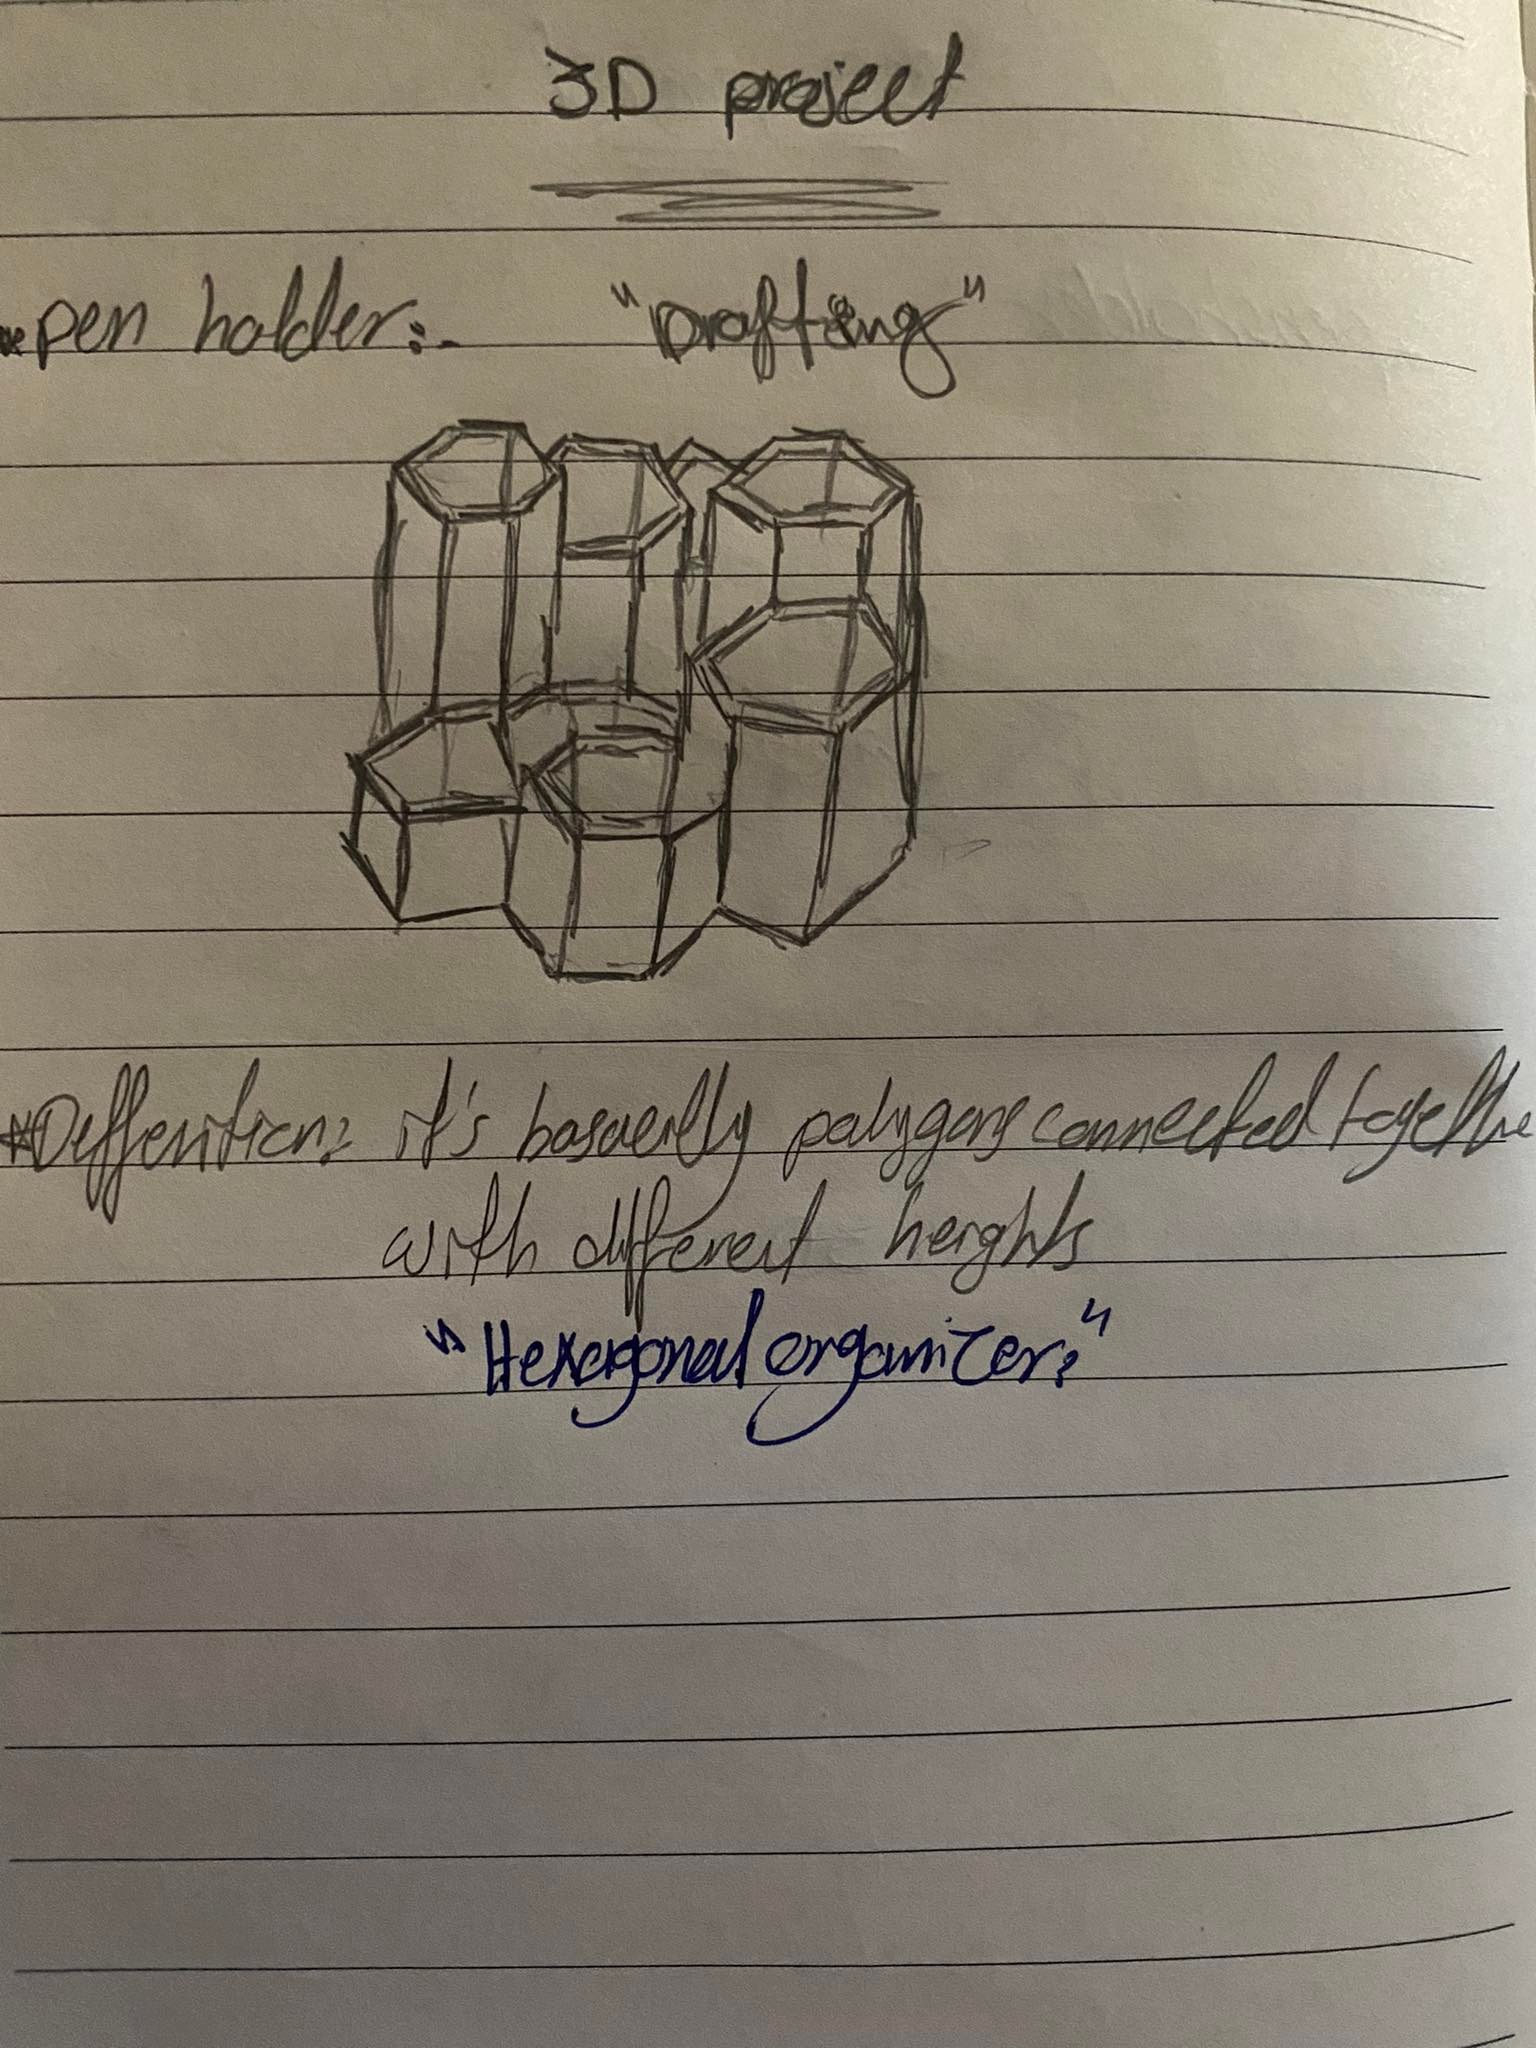 3D project
*pen holder:- "Drafting"
*Deffenition: it's basicelly polygons connected togethe
with different heights
"Hexagonal organizer:"